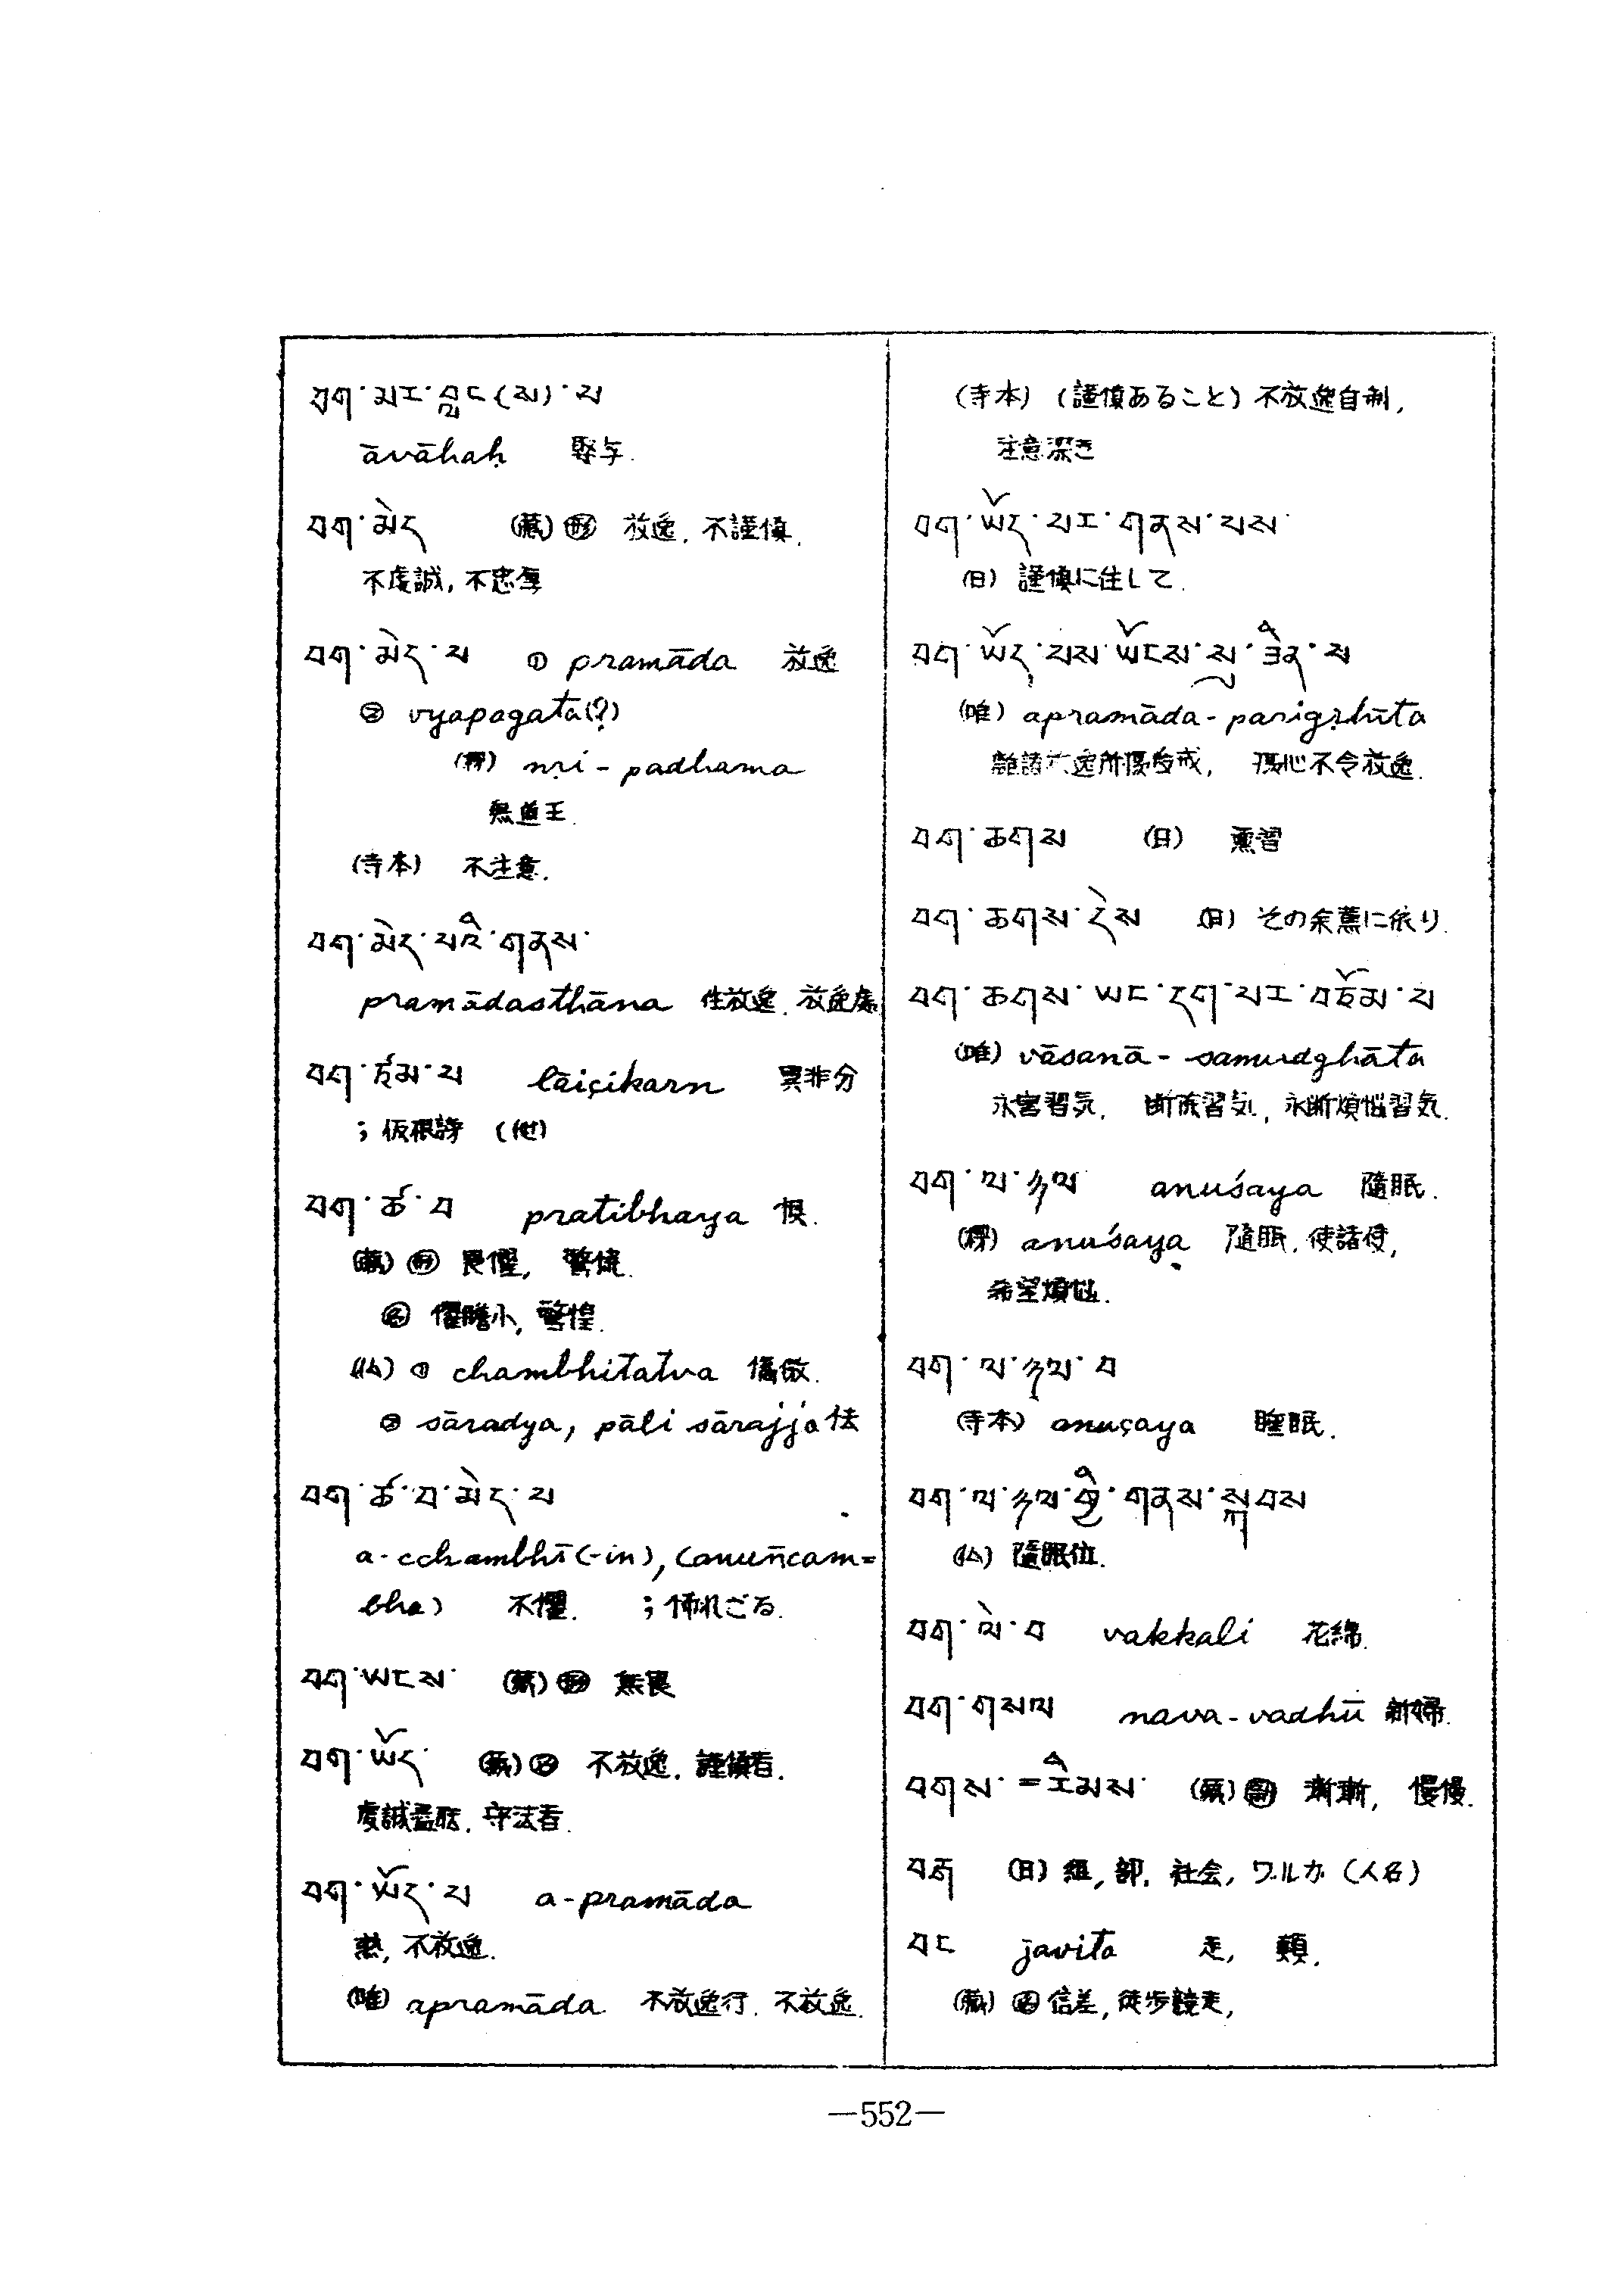 བག་མར་བླང(ས)་པ
āvāhaḥ 娶与.
བག་མེད (蔵) 形 放逸. 不謹慎.
不虔誠, 不忠厚
བག་མེད་པ ① pramāda 放逸
② vyapagata(?)
nṛi-padhama
無道王.
(寺本) 不注意.
བག་མེད་པའི་གནས་
pramādasthāna 性放逸. 放逸處
བག་ཙམ་པ leiçikarn 異非分
; 仮根謗 (他)
བག་ཚ་བ pratibhaya 恨.
(蔵) 形 畏懼, 驚慌.
名 懼膽小, 驚惶.
(仏) ① chambhitatva 傲.
② sāradya, pāli sārajja 怯
བག་ཚ་བ་མེད་པ
a-cchambhī(-in), (anuñcam=
bha) 不懼. ; 怖れざる.
བག་ཡངས་ (蔵) 形 無畏
བག་ཡོད་ (蔵) 名 不放逸. 謹慎者.
虔誠. 守法者.
བག་ཡོད་པ a-pramāda
不放逸.
(唯) apramāda 不放逸行. 不放逸.
(寺本) (謹慎あること) 不放逸自制,
注意深き
བག་ཡོད་པར་གནས་པས་
(日) 謹慎に住して.
བག་ཡོད་པས་ཡོངས་སུ་ཟིན་པ
(唯) apramāda-parigṛhīta
離諸放逸所, 心不令放逸.
བག་ཆགས (日) 熏習
བག་ཆགས་དེས (日) その余薫に依り.
བག་ཆགས་ཡང་དག་པར་བཅོམ་པ
(唯) vāsanā-samudghāta
永害習気, 断除習気, 永断煩悩習気.
བག་ལ་ཉལ anuśaya 隨眠.
anuśaya 隨眠. 使諸使,
希望煩悩.
བག་ལ་ཉལ་བ
(寺本) anuçaya 睡眠.
བག་ལ་ཉལ་གྱི་གནས་སྐབས
(仏) 隨眠位.
བག་ལེ་བ vakkali 花綿.
བག་གསལ nava-vadhū 新婦.
བགས་=རིམས་ (蔵) 副 漸漸, 慢慢.
བཏ (日) 組, 部, 社会, ワルカ (人名)
བང javita 走, 類.
(蔵) 名 信差, 徒歩競走,
—552—